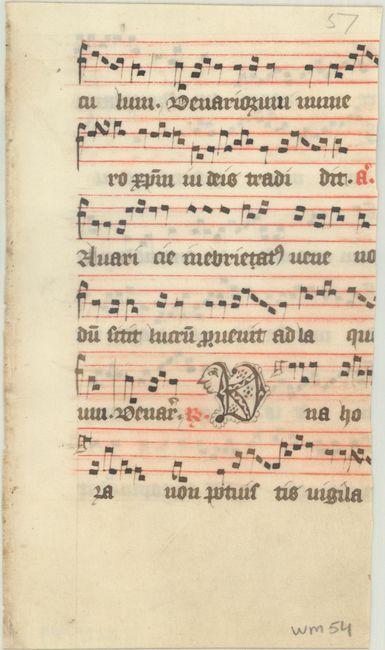 57
cu lum. Denariorum nume
ro xp̄m iudeis tradi dit. ā.
Avari cie inebrietatꝰ vene no
dū sitit lucrū ꝑvenit ad la que
um. Denar. ℟. Una ho
ra non potuis tis vigila
wm 54